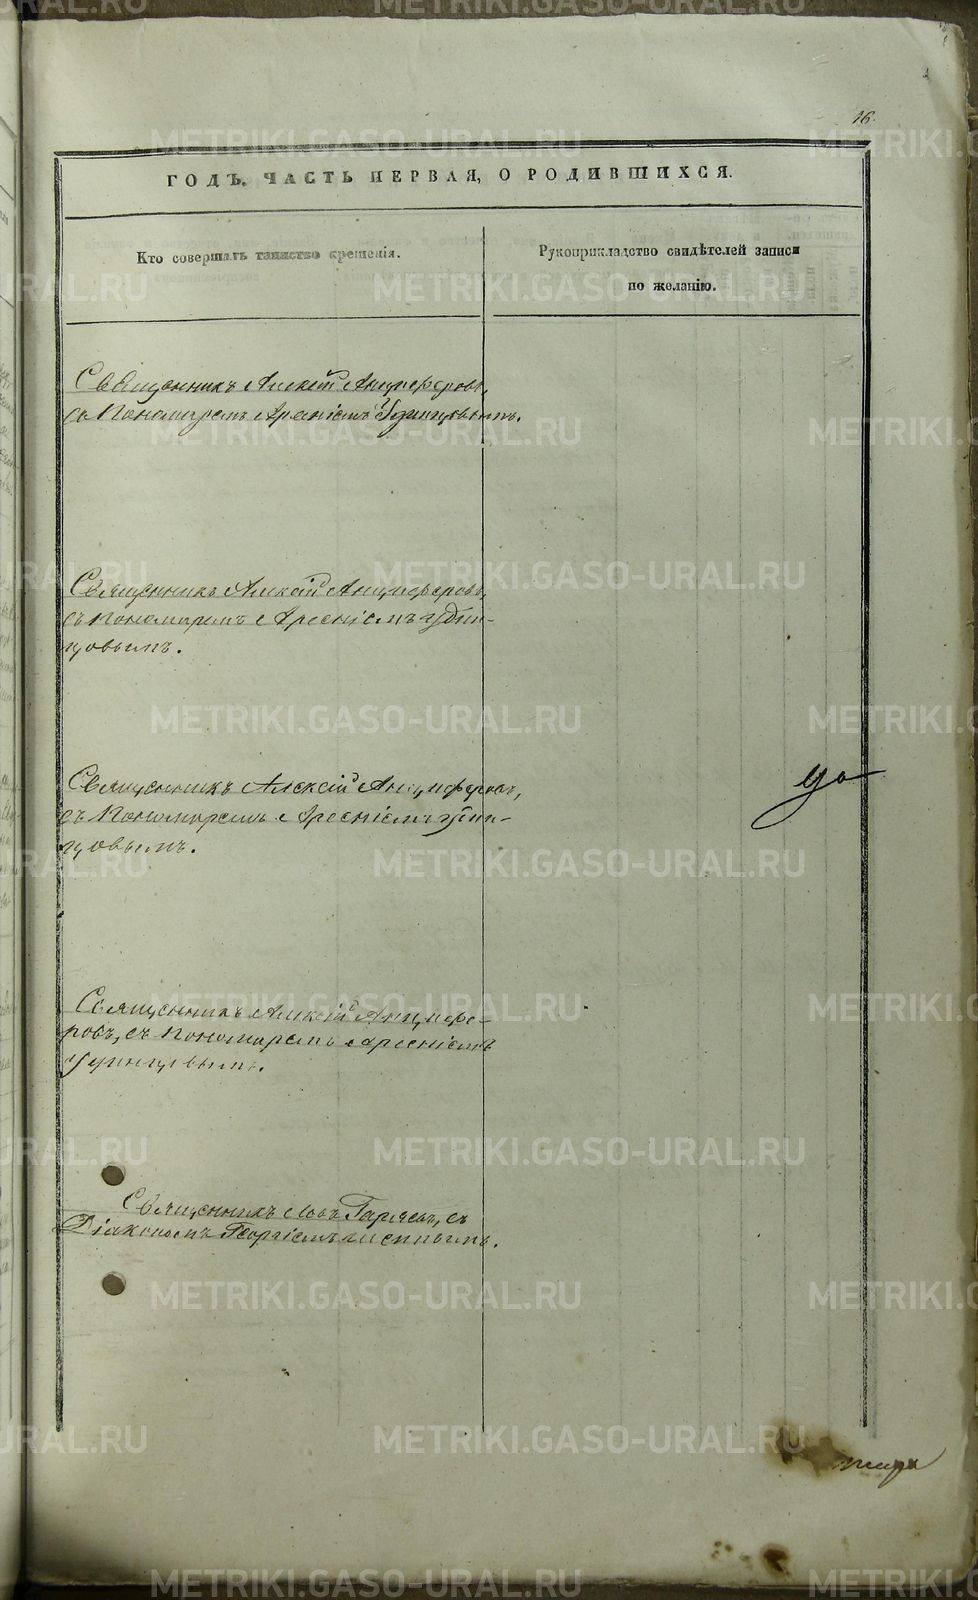 16.
ГОДЪ. ЧАСТЬ ПЕРВАЯ, О РОДИВШИХСЯ.
Кто совершалъ таинство крещенія.
Рукоприкладство свидѣтелей записи
по желанію.
Священникъ Алексій Анциферовъ,
съ Пономаремъ Арсеніемъ Удинцовымъ.
Священникъ Алексій Анциферовъ,
съ Пономаремъ Арсеніемъ Удин-
цовымъ.
Священникъ Алексій Анциферовъ,
съ Пономаремъ Арсеніемъ Удин-
цовымъ.
Священникъ Алексій Анцифе-
ровъ, съ Пономаремъ Арсеніемъ
Удинцовымъ.
Священникъ Іовъ Гаряевъ, съ
Діакономъ Георгіемъ
METRIKI.GASO-URAL.RU